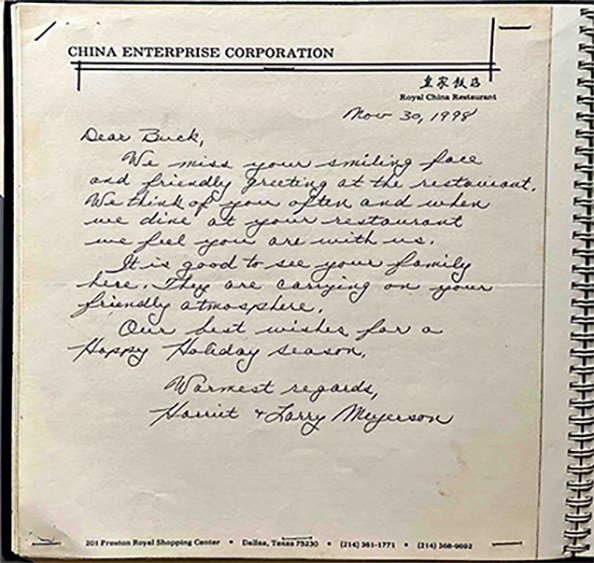 CHINA ENTERPRISE CORPORATION
皇家飯店
Royal China Restaurant
Nov 30, 1998
Dear Buck,
We miss your smiling face
and friendly greeting at the restaurant.
We think of you often and when
we dine at your restaurant
we feel you are with us.
It is good to see your family
here. They are carrying on your
friendly atmosphere.
Our best wishes for a
Happy Holiday season.
Warmest regards,
Harriet & Larry Meyerson
201 Preston Royal Shopping Center • Dallas, Texas 75230 • (214) 361-1771 • (214) 368-9692